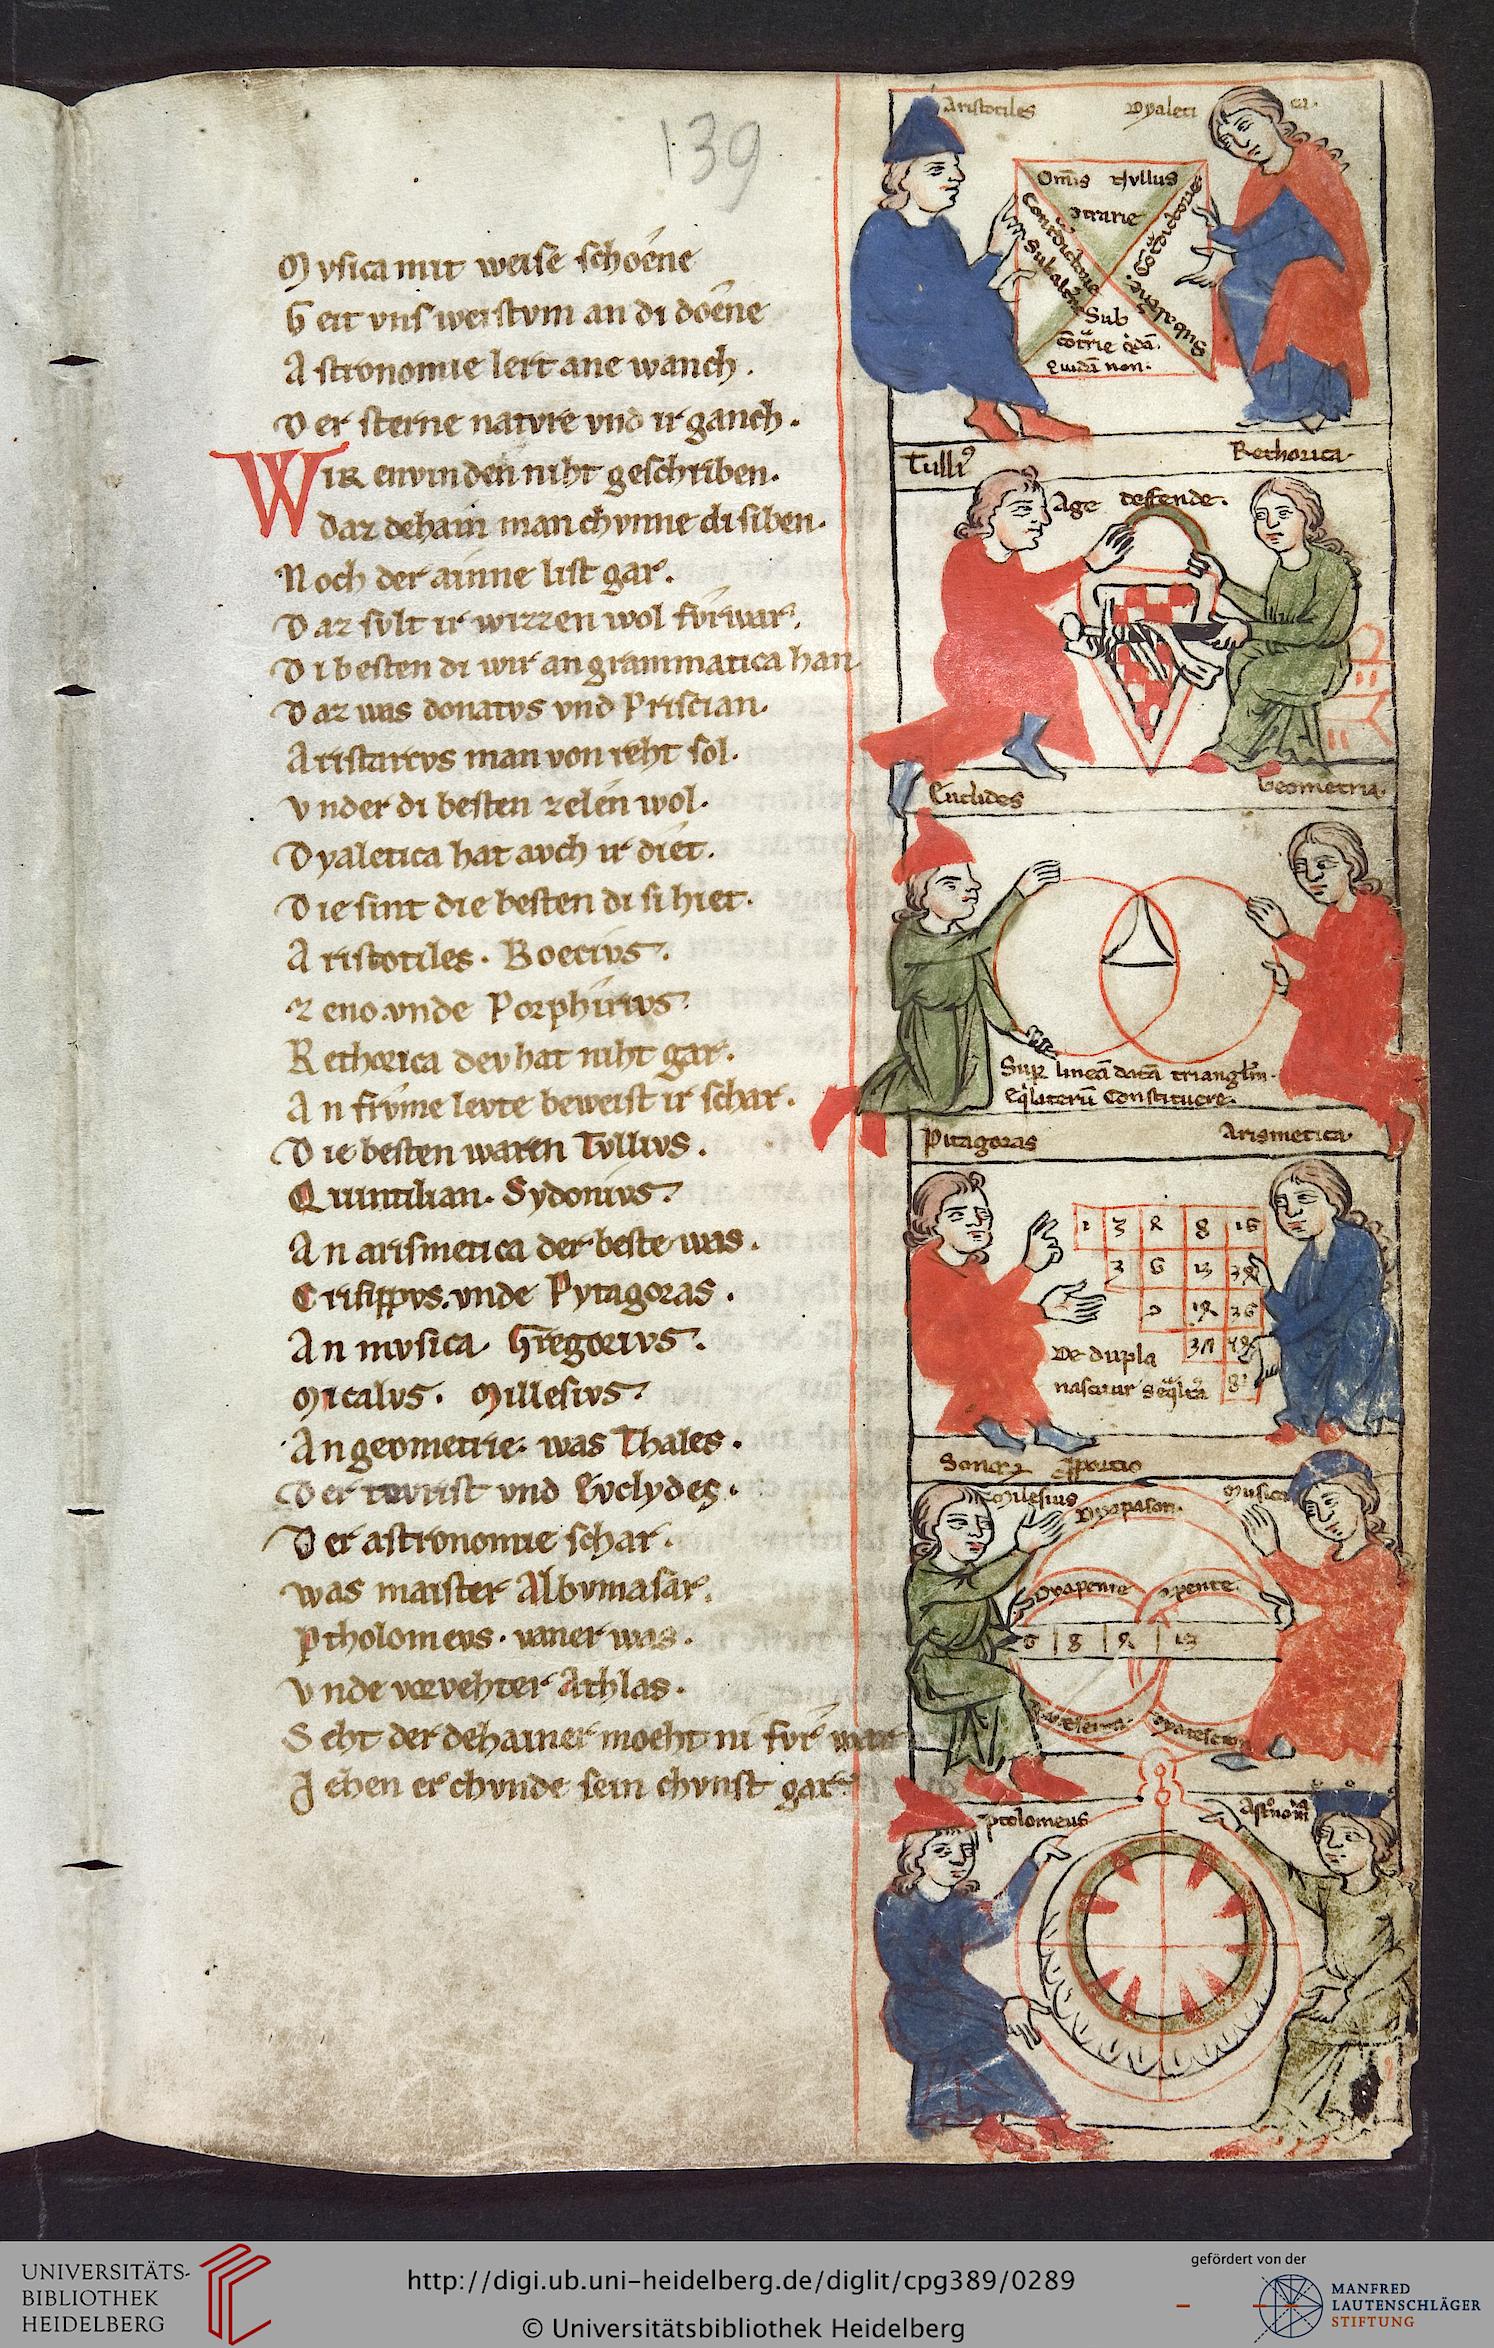 139
Mvsica mit weise schoene
Geit vns weistvm an di doene
Astronomie lert ane wanch.
Der sterne natvre vnd ir ganch.
Wir envinden niht geschriben.
Daz dehain man chvnne di siben.
Noch der ainne list gar.
Daz svlt ir wizzen wol fvrwar.
Di besten di wir an grammatica han
Daz was donatvs vnd Priscian.
Aristarcvs man von reht sol.
Vnder di besten zelen wol.
Dyaletica hat avch ir diet.
Die sint die besten di si hiet.
Aristotiles. Boecivs.
Zeno. vnde Porphirivs.
Rethorica dev hat niht gar.
An frvme levte beweist ir schar.
Die besten waren Tvllivs.
Quintilian. Sydonivs.
An arismetica der beste was.
Crisippvs. vnde Pytagoras.
An mvsica Gregorivs.
Micalvs. Millesivs.
An geometrie. was Thales.
Der tivrist vnd Evclydes.
Der astronomie schar.
Was maister Albvmasar.
Ptholomevs. vaner was.
Vnde vorvehter Athlas.
Seht der dehainer moeht ni fvr war
Jehen er chvnde sein chvnst gar.
Aristotiles Dyaleti ca.
Om̄is Nvllus
ɔtrarie
Sub
Quidā non.
Tulliꝰ Rethorica
Age deffende.
Euclides Geometria.
Sup lineā datā trianglm.
Eqˡlaterū Constituere.
Pitagoras Arismetica
1 3 2 8 16
3 6 12
De dupla
nascitur seqˡltā
Milesius Musica
Dyapason.
Dyapente ɔpente.
6 8 9 12
Ptolomeus Astᵒnomia
UNIVERSITÄTS-
BIBLIOTHEK
HEIDELBERG
http://digi.ub.uni-heidelberg.de/diglit/cpg389/0289
© Universitätsbibliothek Heidelberg
gefördert von der
MANFRED
LAUTENSCHLÄGER
STIFTUNG